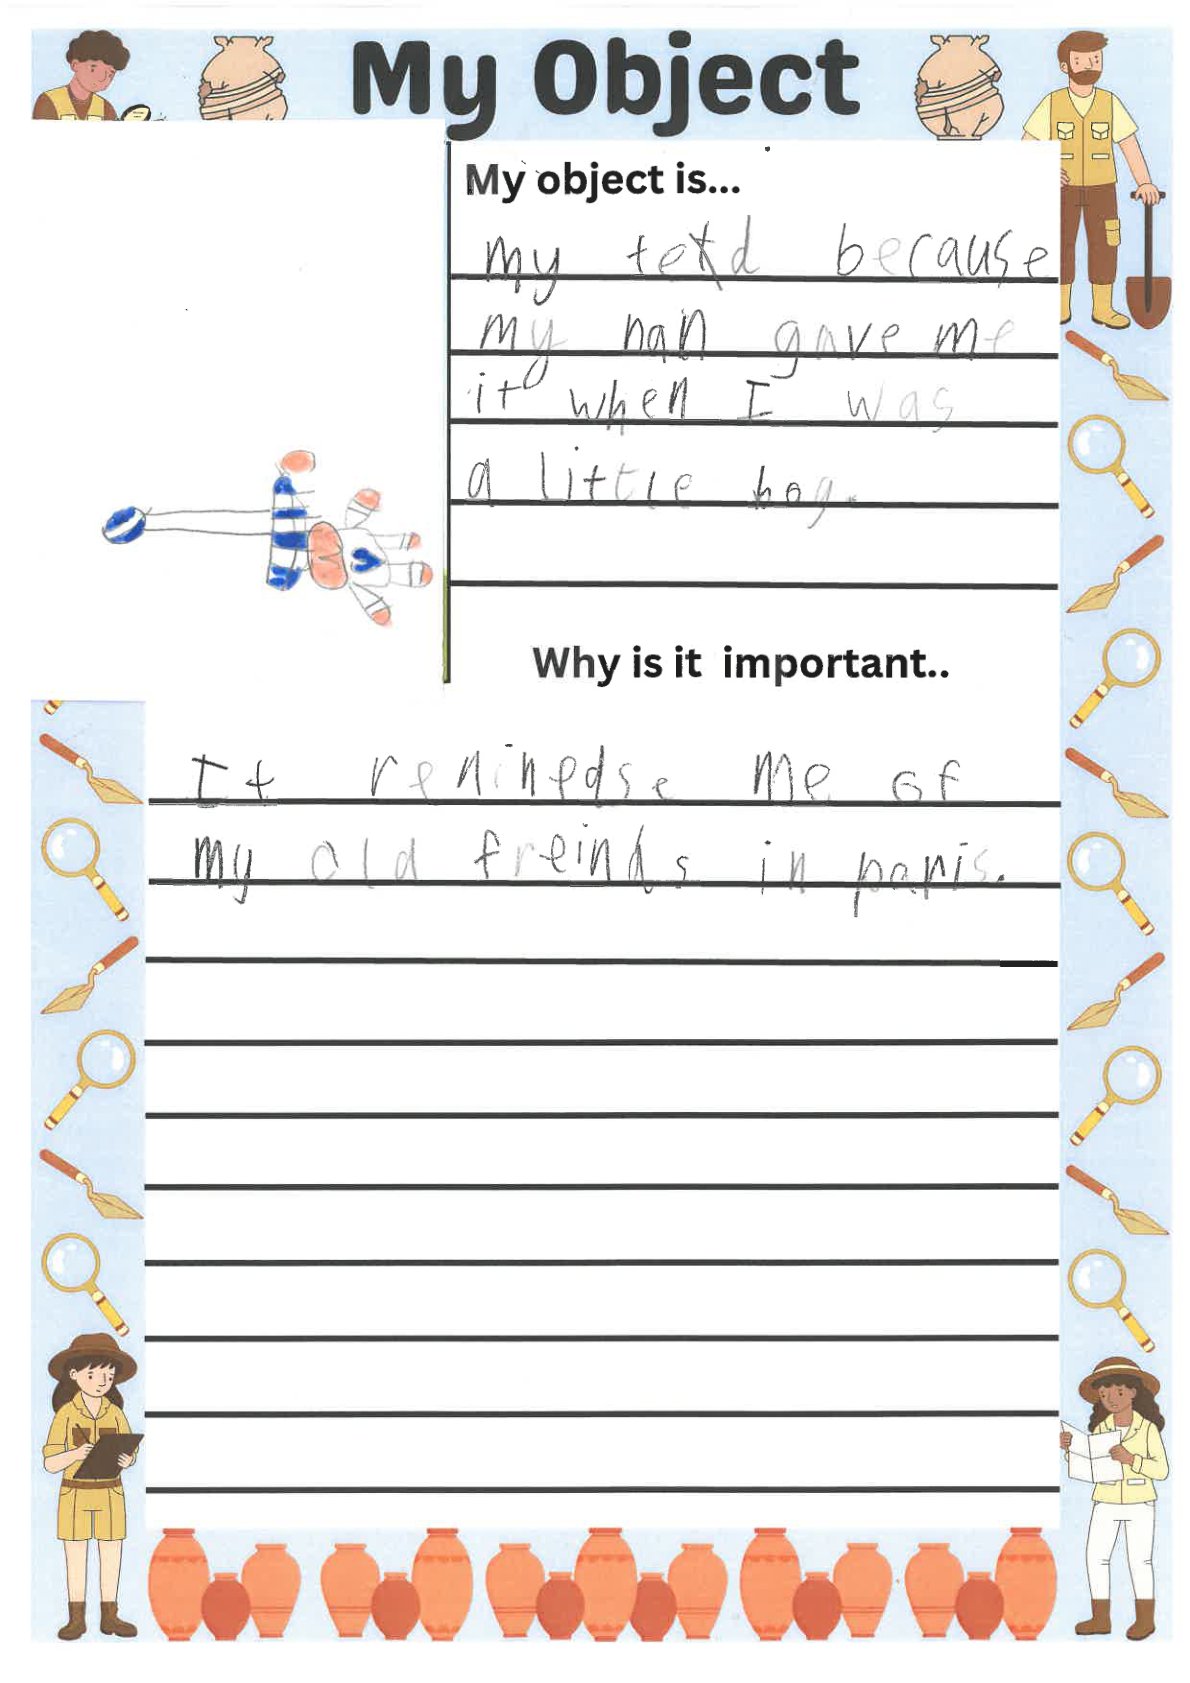 My Object
My object is...
my texd because
my nan gave me
it when I was
a little boy.
Why is it important..
It reninedse me of
my old freinds in paris.